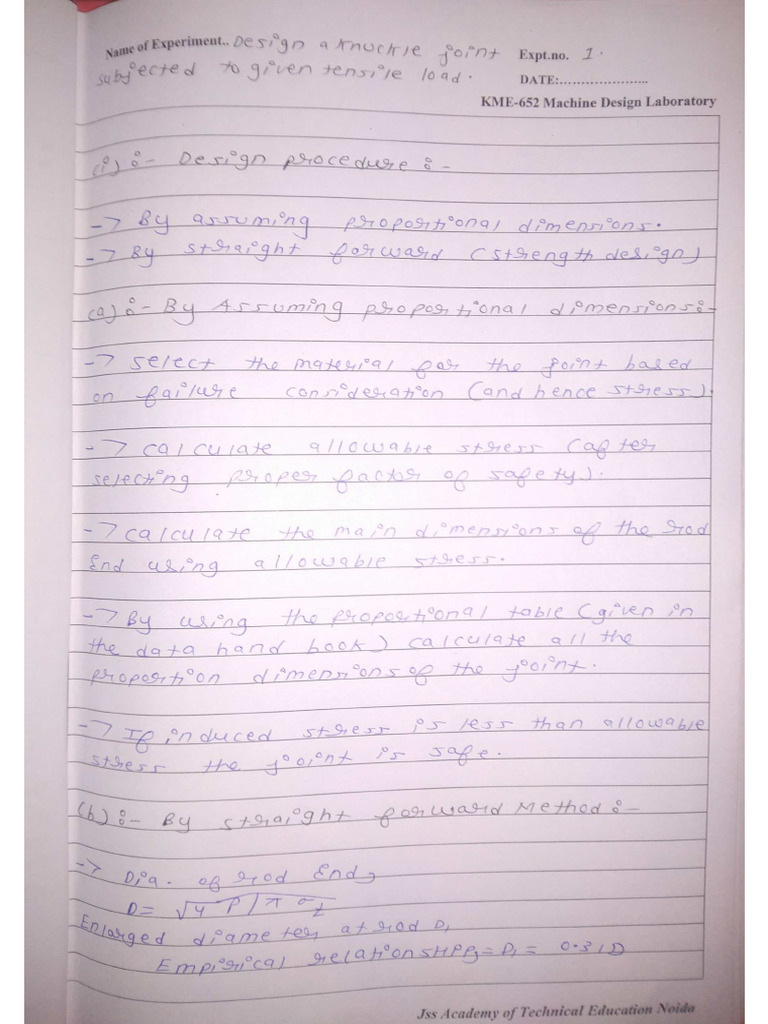 Name of Experiment.. Design a knuckle joint
Expt.no. 1.
subjected to given tensile load.
DATE:....................
KME-652 Machine Design Laboratory
(i) :- Design procedure :-
-> By assuming proportional dimensions.
-> By straight forward (strength design)
(a) :- By Assuming proportional dimensions:-
-> select the material for the joint based
on failure consideration (and hence stress).
-> calculate allowable stress (after
selecting proper factor of safety).
-> calculate the main dimensions of the rod
End using allowable stress.
-> By using the proportional table (given in
the data hand book) calculate all the
proportion dimensions of the joint.
-> If induced stress is less than allowable
stress the joint is safe.
(b) :- By straight forward Method :-
-> Dia. of rod End,
D = √4 P/π σt
Enlarged diameter at rod D1
Empirical = D1 = 0.31D
Jss Academy of Technical Education Noida